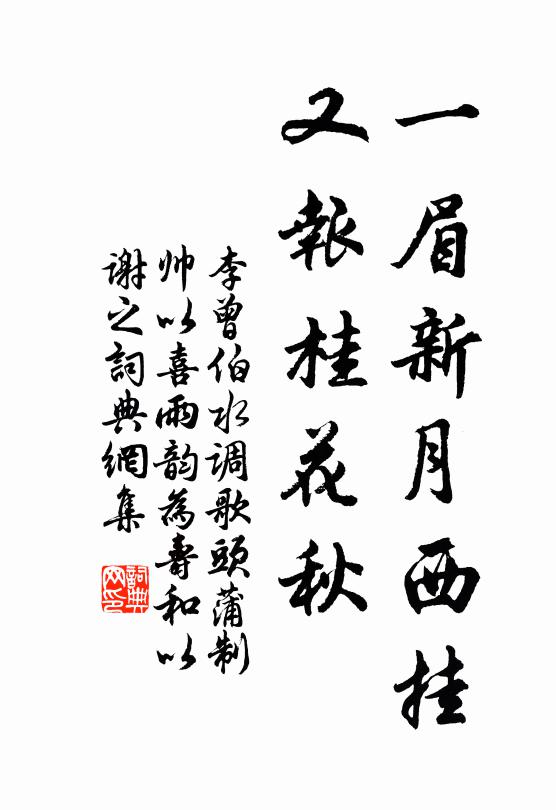 一眉新月西挂
又報桂花秋
李曾伯水调歌頭蒲制
帅以喜雨韵為壽和以
谢之詞典網集
詞典网印